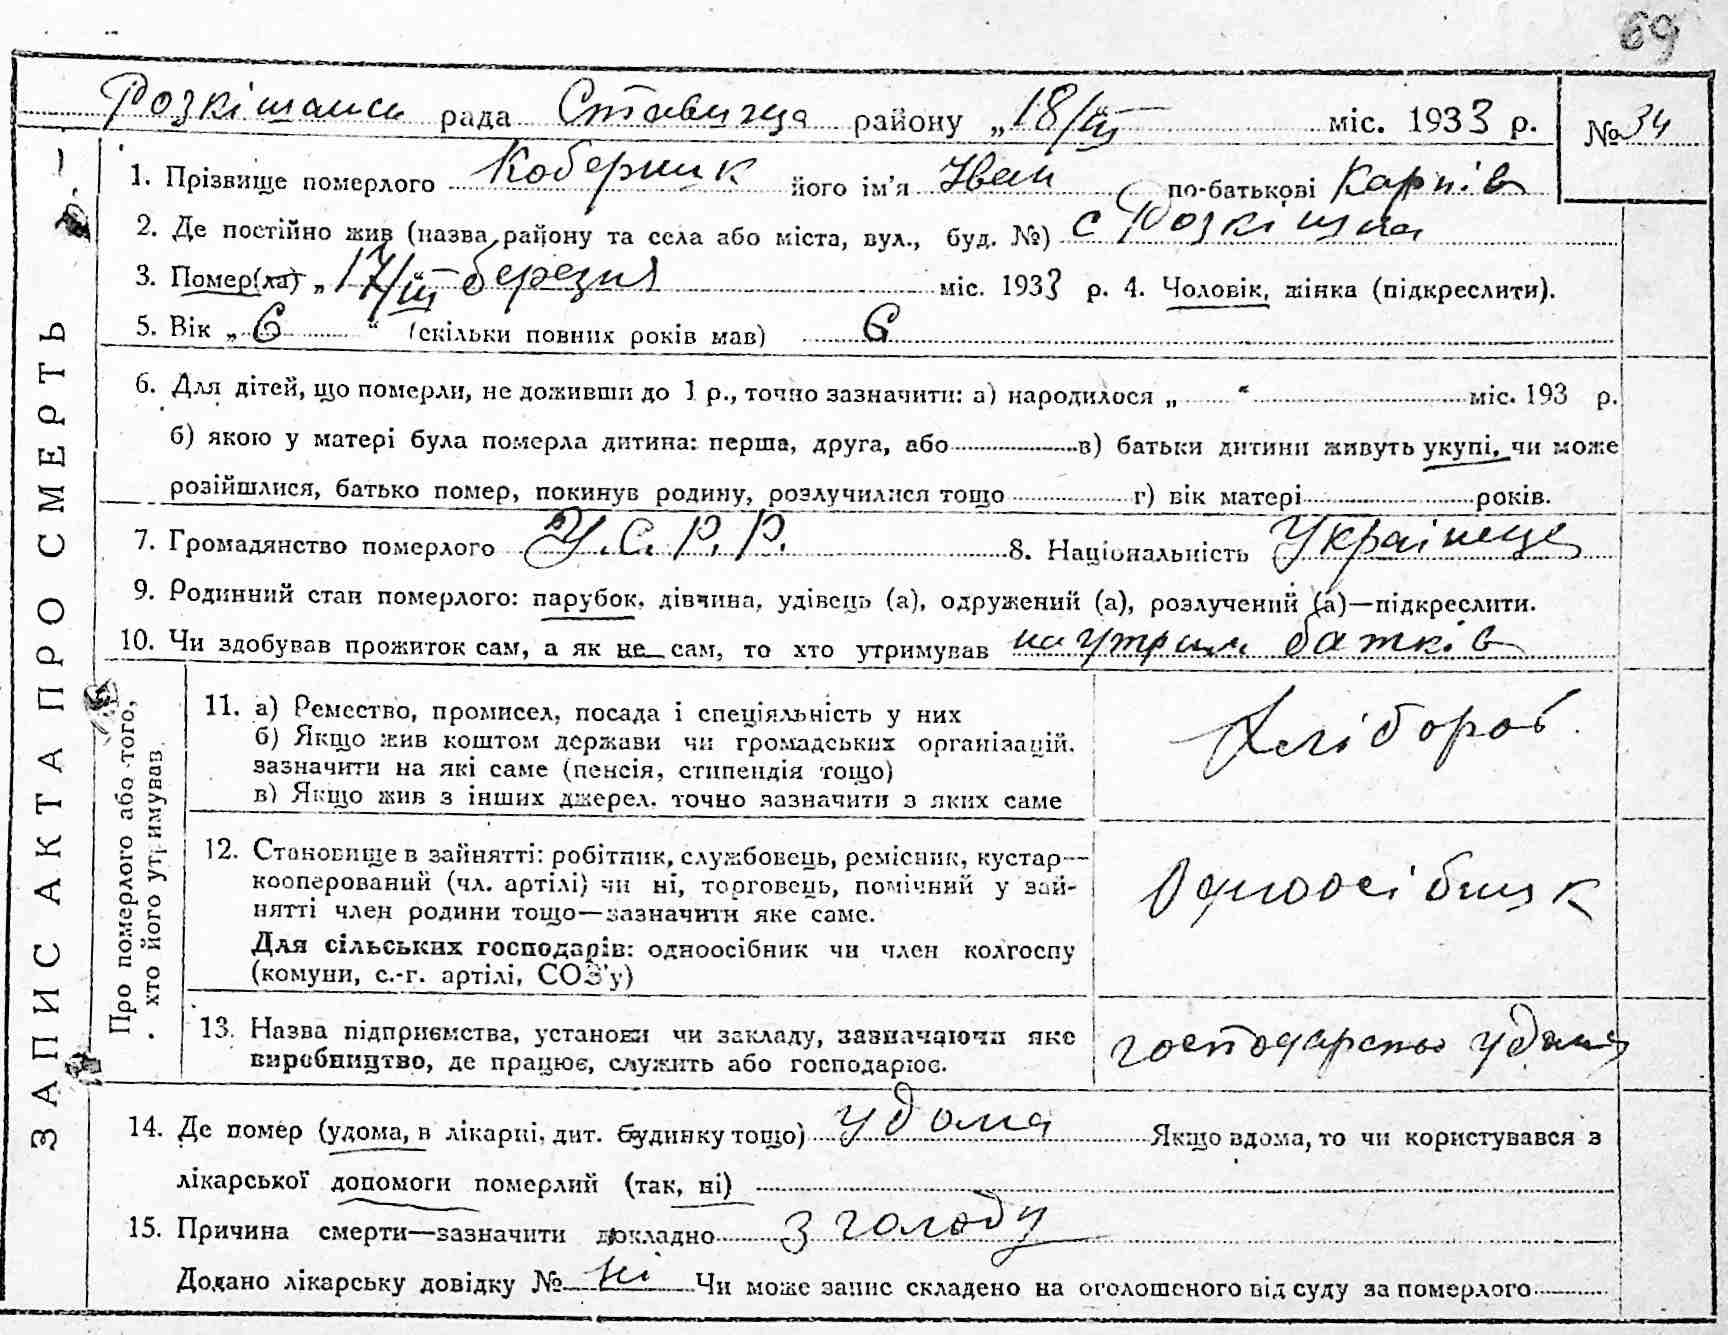 69
Розкішанська рада Ставища району „18/III міс. 1933 р. № 34
1. Прізвище померлого Коберник його ім’я Іван по-батькові Карпів
2. Де постійно жив (назва району та села або міста, вул., буд. №) с Розкішна
3. Помер(ла) „17/III березня міс. 1933 р. 4. Чоловік, жінка (підкреслити).
5. Вік „6“ (скільки повних років мав) 6
6. Для дітей, що померли, не доживши до 1 р., точно зазначити: а) народилося „ “ міс. 193 р.
б) якою у матері була померла дитина: перша, друга, або в) батьки дитини живуть укупі, чи може
розійшлися, батько помер, покинув родину, розлучилися тощо г) вік матері років.
7. Громадянство померлого У.С.Р.Р. 8. Національність Українець
9. Родинний стан померлого: парубок, дівчина, удівець (а), одружений (а), розлучений (а)—підкреслити.
10. Чи здобував прожиток сам, а як не сам, то хто утримував на утрим батків
11. а) Ремество, промисел, посада і спеціяльність у них
б) Якщо жив коштом держави чи громадських організацій,
зазначити на які саме (пенсія, стипендія тощо)
в) Якщо жив з інших джерел, точно зазначити з яких саме
Хлібороб.
12. Становище в зайнятті: робітник, службовець, ремісник, кустар—
кооперований (чл. артілі) чи ні, торговець, помічний у зай-
нятті член родини тощо—зазначити яке саме.
Для сільських господарів: одноосібник чи член колгоспу
(комуни, с.-г. артілі, СОЗ’у)
Одноосібник
13. Назва підприємства, установи чи закладу, зазначаючи яке
виробництво, де працює, служить або господарює.
господарство удома
14. Де помер (удома, в лікарні, дит. будинку тощо) удома Якщо вдома, то чи користувався з
лікарської допомоги померлий (так, ні)
15. Причина смерти—зазначити докладно з голоду
Додано лікарську довідку № ні Чи може запис складено на оголошеного від суду за померлого
ЗАПИС АКТА ПРО СМЕРТЬ
Про померлого або того,
хто його утримував